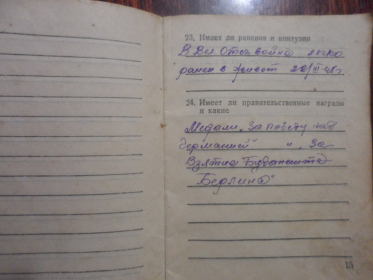 23. Имеет ли ранения и контузии
В Вел Отеч. войне легко
ранен в живот
24. Имеет ли правительственные награды
и какие
Медали „За победу над
Германией" „За
Взятие Будапешта
Берлина"
15